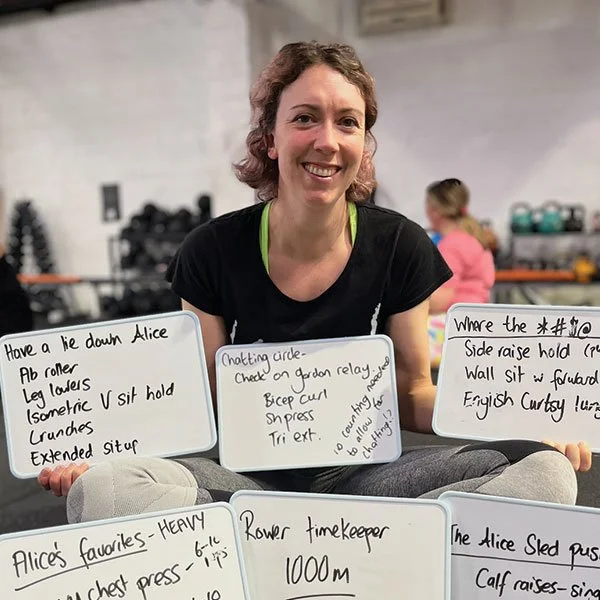 Have a lie down Alice
Ab roller
Leg lowers
Isometric V sit hold
Crunches
Extended sit up
Chatting circle-
Check on gordon relay.
Bicep curl
Sh press
Tri ext.
no counting needed
to allow for
chatting!?
Where the *#$!@
Side raise hold
Wall sit w forward
English Curtsy lung
Alice's favorites - HEAVY
chest press -
Rower timekeeper
1000m
The Alice Sled pus
Calf raises - sing